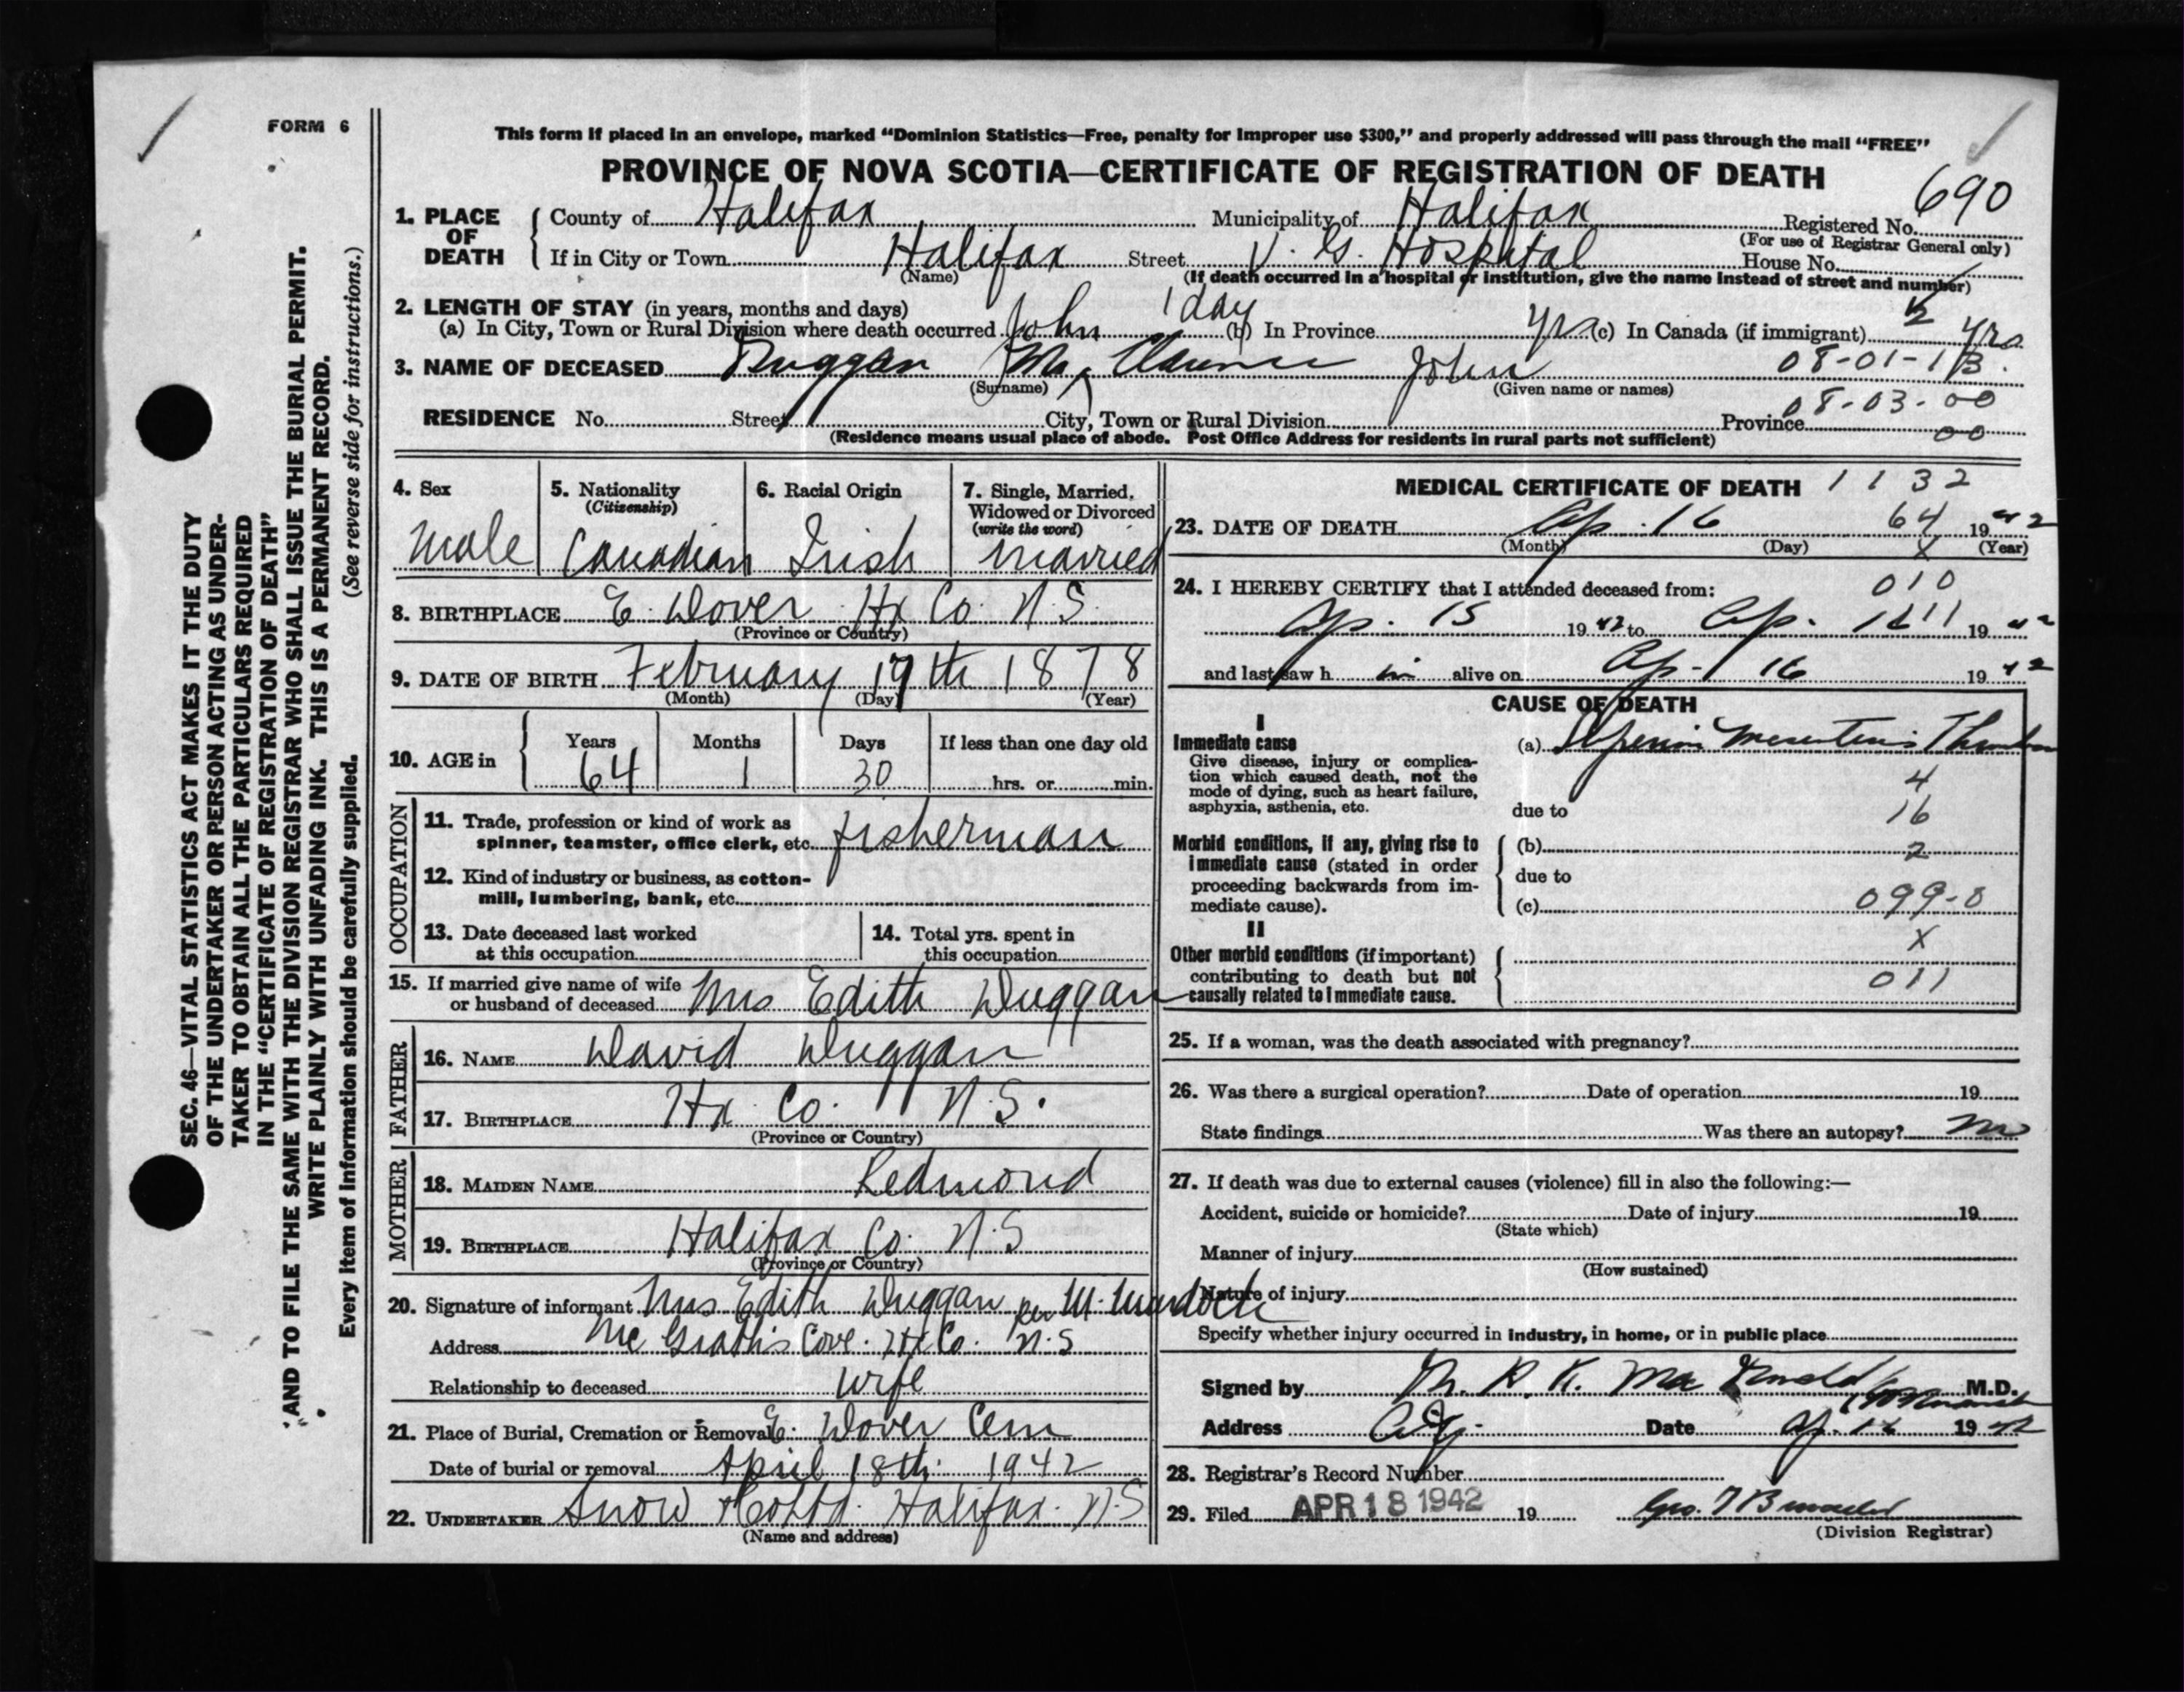 FORM 6
This form if placed in an envelope, marked "Dominion Statistics—Free, penalty for improper use $300," and properly addressed will pass through the mail "FREE"
PROVINCE OF NOVA SCOTIA—CERTIFICATE OF REGISTRATION OF DEATH
690
1. PLACE OF DEATH { County of Halifax Municipality of Halifax Registered No.
(For use of Registrar General only)
If in City or Town Halifax Street V. G. Hospital House No.
(Name) (If death occurred in a hospital or institution, give the name instead of street and number)
2. LENGTH OF STAY (in years, months and days) 1 day
(a) In City, Town or Rural Division where death occurred John (b) In Province yrs (c) In Canada (if immigrant) yrs
3. NAME OF DECEASED Duggan Mr. Clarence John 08-01-13.
(Surname) (Given name or names)
08-03-00
RESIDENCE No. Street City, Town or Rural Division Province 00
(Residence means usual place of abode. Post Office Address for residents in rural parts not sufficient)
4. Sex
Male
5. Nationality
(Citizenship)
Canadian
6. Racial Origin
Irish
7. Single, Married, Widowed or Divorced
(write the word)
Married
8. BIRTHPLACE E. Dover Hx Co. N.S.
(Province or Country)
9. DATE OF BIRTH February 17th 1878
(Month) (Day) (Year)
10. AGE in { Years Months Days If less than one day old
64 1 30 hrs. or min.
OCCUPATION
11. Trade, profession or kind of work as
spinner, teamster, office clerk, etc. fisherman
12. Kind of industry or business, as cotton-
mill, lumbering, bank, etc.
13. Date deceased last worked
at this occupation
14. Total yrs. spent in
this occupation
15. If married give name of wife
or husband of deceased Mrs Edith Duggan
FATHER
16. NAME David Duggan
17. BIRTHPLACE Hx. Co. N.S.
(Province or Country)
MOTHER
18. MAIDEN NAME Redmond
19. BIRTHPLACE Halifax Co. N.S
(Province or Country)
20. Signature of informant Mrs Edith Duggan per M. Murdoch
Address McGrath's Cove. Hx Co. N.S
Relationship to deceased wife
21. Place of Burial, Cremation or Removal E. Dover Cem
Date of burial or removal April 18th. 1942
22. UNDERTAKER Snow & Co Ltd. Halifax. N.S
(Name and address)
MEDICAL CERTIFICATE OF DEATH 1132
23. DATE OF DEATH Ap. 16 64 1942
(Month) (Day) X (Year)
24. I HEREBY CERTIFY that I attended deceased from: 010
Ap. 15 1942 to Ap. 16 11 1942
and last saw h im alive on Ap. 16 1942
CAUSE OF DEATH
I
Immediate cause
Give disease, injury or complica-
tion which caused death, not the
mode of dying, such as heart failure,
asphyxia, asthenia, etc.
(a) Superior Mesenteric
4
due to 16
Morbid conditions, if any, giving rise to
immediate cause (stated in order
proceeding backwards from im-
mediate cause).
(b) 2
due to
(c) 099-0
II
Other morbid conditions (if important)
contributing to death but not
causally related to immediate cause.
X
011
25. If a woman, was the death associated with pregnancy?
26. Was there a surgical operation? Date of operation 19
State findings Was there an autopsy? No
27. If death was due to external causes (violence) fill in also the following:—
Accident, suicide or homicide? Date of injury 19
(State which)
Manner of injury
(How sustained)
Nature of injury
Specify whether injury occurred in industry, in home, or in public place
Signed by R. K. M.D.
Address City. Date Ap. 16 1942
28. Registrar's Record Number
29. Filed APR 18 1942 19
(Division Registrar)
SEC. 46—VITAL STATISTICS ACT MAKES IT THE DUTY
OF THE UNDERTAKER OR PERSON ACTING AS UNDER-
TAKER TO OBTAIN ALL THE PARTICULARS REQUIRED
IN THE "CERTIFICATE OF REGISTRATION OF DEATH"
AND TO FILE THE SAME WITH THE DIVISION REGISTRAR WHO SHALL ISSUE THE BURIAL PERMIT.
WRITE PLAINLY WITH UNFADING INK. THIS IS A PERMANENT RECORD.
Every item of information should be carefully supplied. (See reverse side for instructions.)